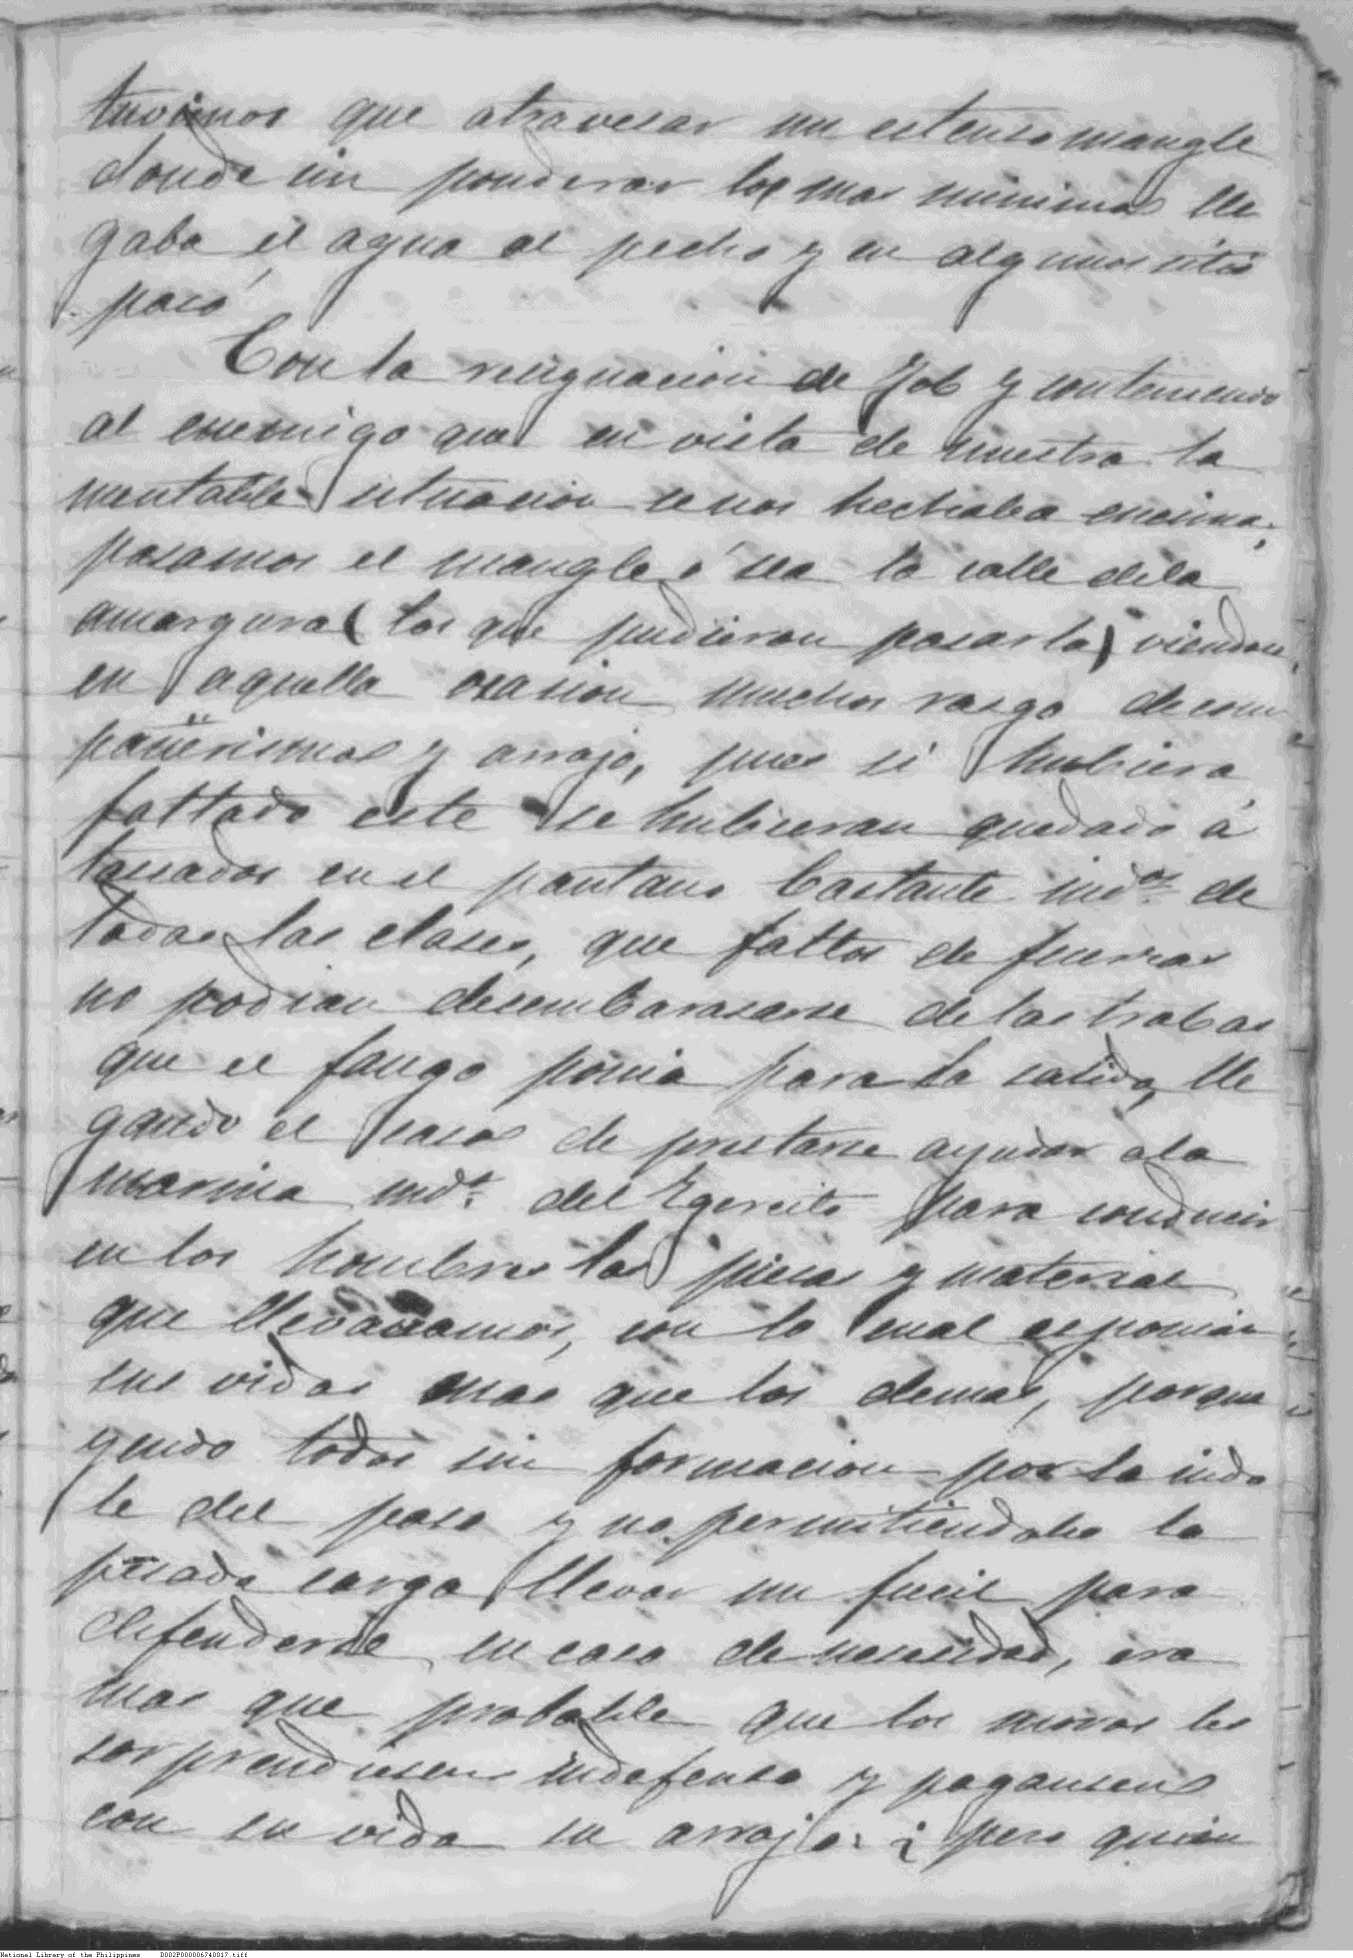 tuvimos que atravesar un estenso mangle
donde sin ponderar lo mas minimas lle
gaba el agua al pecho y en algunos sitios
pasó
Con la resignacion de Job y conteniendo
al enemigo que en vista de nuestra la
mentable situacion se nos hechaba encima;
pasamos el mangle ó sea la calle dela
amargura (los que pudieron pasarla) viendose
en aquella ocasion muchos rasgo decom
pañerismos y arrojo, pues si hubiera
faltado este se hubieran quedado á
tascados en el pantano bastante indos de
todas las clases, que faltos de fuerzas
no podian desembarasarse delas trabas
que el fango ponia para la salida, lle
gando el caso de prestarse ayudar ala
marina indª del Egercito para conducir
en los hombros las piezas y material
que llevabamos, con lo cual esponian
sus vidas mas que los demas, porque
yendo todos sin formacion por la indo
le del paso y no permitiendoles la
pesada carga llevar un fusil para
defenderse en caso de necesidad, era
mas que probable que los moros les
sorprendiesen indefenso y pagansen
con su vida su arrojo: ¿ pero quien
National Library of the Philippines D002P000006740017.tiff